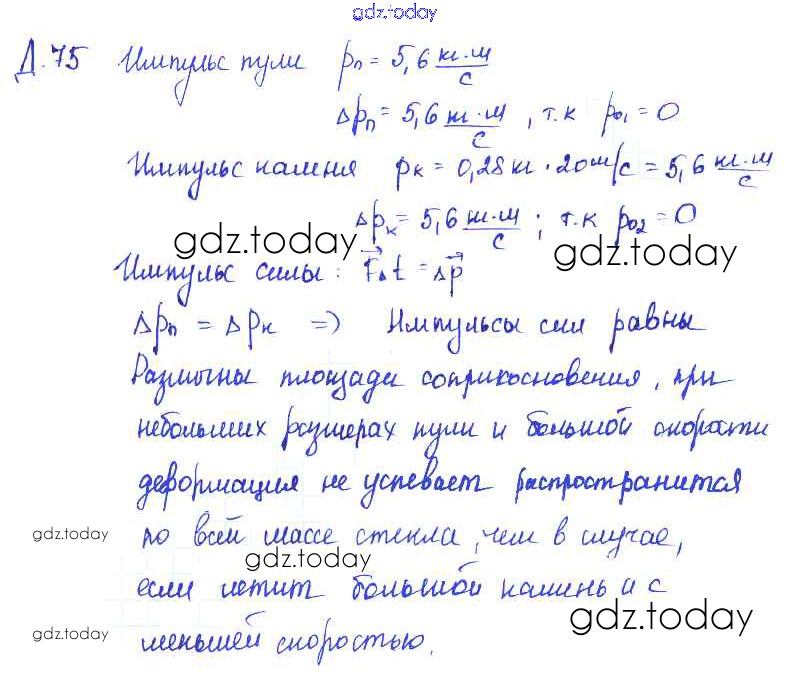 gdz.today
Д.75 Импульс пули pп = 5,6 кг·м/с
Δpп = 5,6 кг·м/с, т.к p01 = 0
Импульс камня pк = 0,28 кг · 20 м/с = 5,6 кг·м/с
Δpк = 5,6 кг·м/с; т.к p02 = 0
gdz.today
gdz.today
Импульс силы: F⃗Δt = Δp⃗
Δpп = Δpк => Импульсы сил равны
Различны площади соприкосновения, при
небольших размерах пули и большой скорости
деформация не успевает распространится
gdz.today по всей массе стекла, чем в случае,
gdz.today
если летит большой камень и с
gdz.today
gdz.today меньшей скоростью.